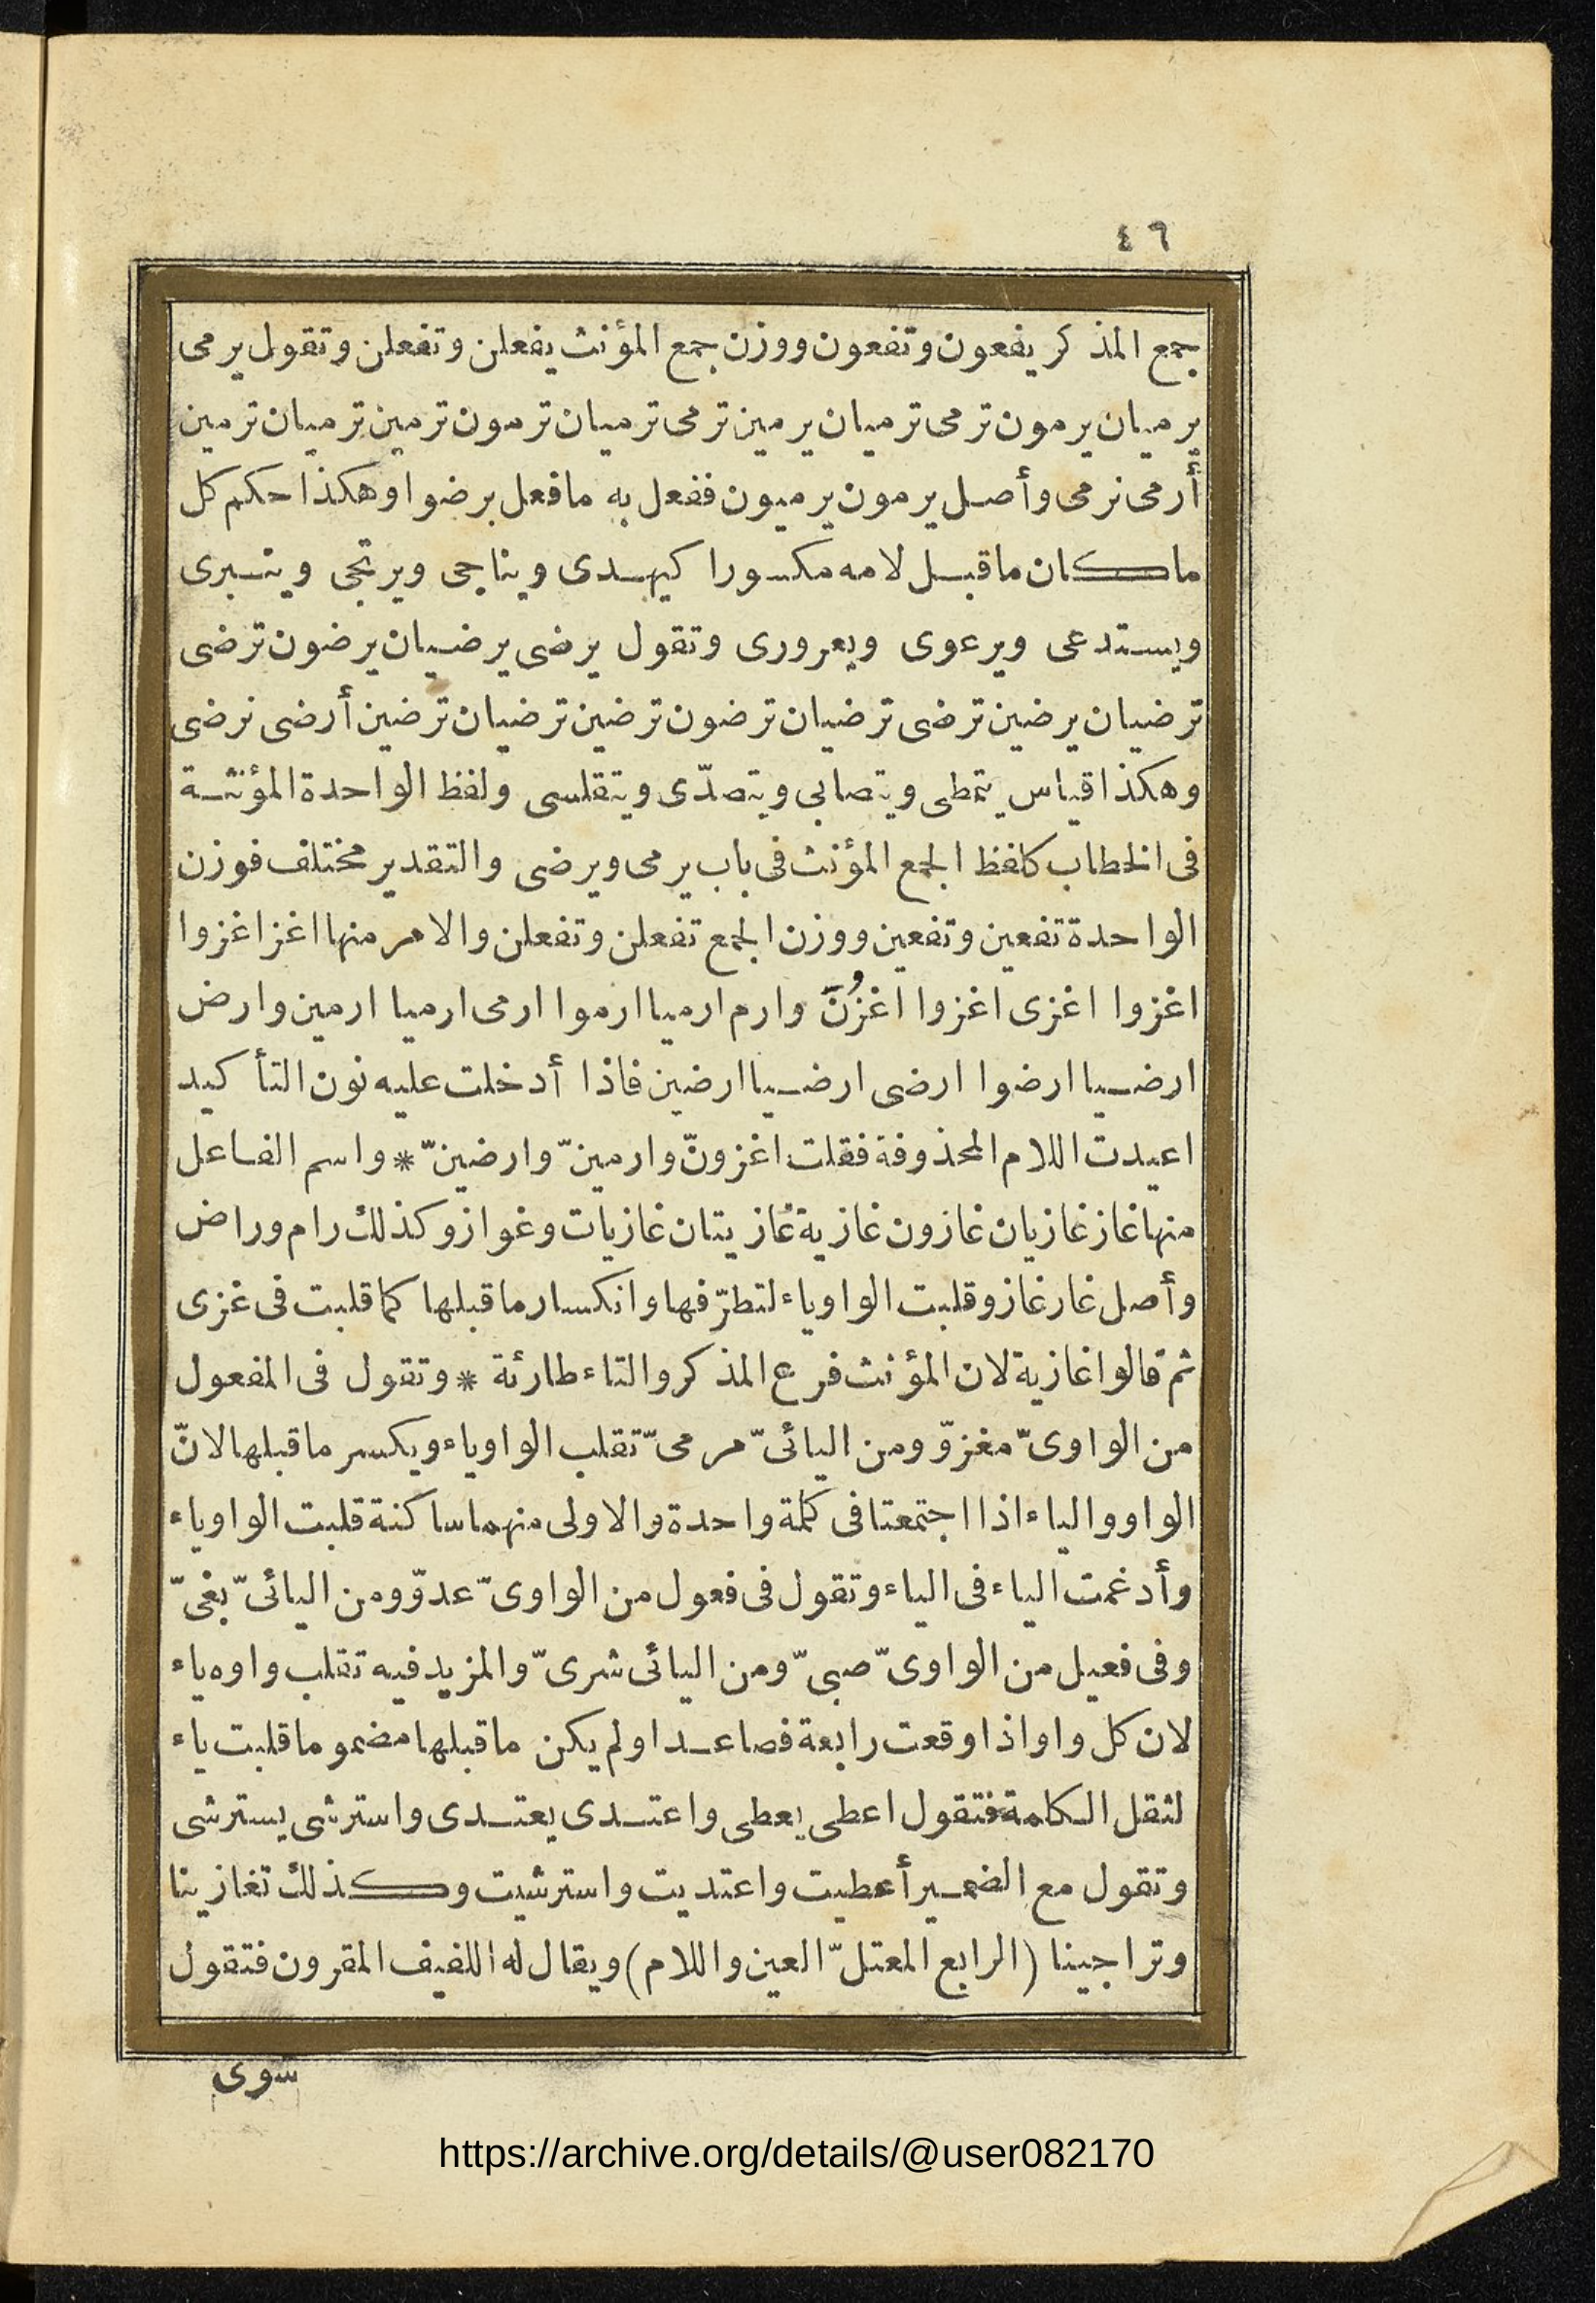 ٤٦
جمع المذكر يفعون وتفعون ووزن جمع المؤنث يفعلن وتفعلن وتقول يرمى
يرميان يرمون ترمى ترميان يرمين ترمى ترميان ترمون ترمين ترميان ترمين
أرمى نرمى وأصل يرمون يرميون ففعل به مافعل برضوا وهكذا حكم كل
ماكان ماقبل لامه مكسورا كيهدى ويناجى ويرتجى وينبرى
ويستدعى ويرعوى ويعرورى وتقول يرضى يرضيان يرضون ترضى
ترضيان يرضين ترضى ترضيان ترضون ترضين ترضيان ترضين أرضى نرضى
وهكذا قياس يتمطى ويتصابى ويتصدّى ويتقلسى ولفظ الواحدة المؤنثة
فى الخطاب كلفظ الجمع المؤنث فى باب يرمى ويرضى والتقدير مختلف فوزن
الواحدة تفعين وتفعين ووزن الجمع تفعلن وتفعلن والامر منها اغز اغزوا
اغزوا اغزى اغزوا اغزُونَ وارم ارميا ارموا ارمى ارميا ارمين وارض
ارضيا ارضوا ارضى ارضيا ارضين فاذا أدخلت عليه نون التأكيد
اعيدت اللام المحذوفة فقلت اغزونّ وارمينّ وارضينّ * واسم الفاعل
منها غاز غازيان غازون غازية غازيتان غازيات وغواز وكذلك رام وراض
وأصل غاز غازو قلبت الواو ياء لتطرّفها وانكسار ماقبلها كما قلبت فى غزى
ثم قالوا غازية لان المؤنث فرع المذكر والتاء طارئة * وتقول فى المفعول
من الواوىّ مغزوّ ومن اليائىّ مرمىّ تقلب الواو ياء ويكسر ماقبلها لانّ
الواو والياء اذا اجتمعتا فى كلمة واحدة والاولى منهما ساكنة قلبت الواو ياء
وأدغمت الياء فى الياء وتقول فى فعول من الواوىّ عدوّ ومن اليائىّ بغىّ
وفى فعيل من الواوىّ صبىّ ومن اليائى شرىّ والمزيد فيه تقلب واوه ياء
لان كل واو اذا وقعت رابعة فصاعدا ولم يكن ماقبلها مضموما قلبت ياء
لثقل الكلمة فتقول اعطى يعطى واعتدى يعتدى واسترشى يسترشى
وتقول مع الضمير أعطيت واعتديت واسترشيت وكذلك تغازينا
وتراجينا (الرابع المعتلّ العين واللام) ويقال له اللفيف المقرون فتقول
سوى
https://archive.org/details/@user082170